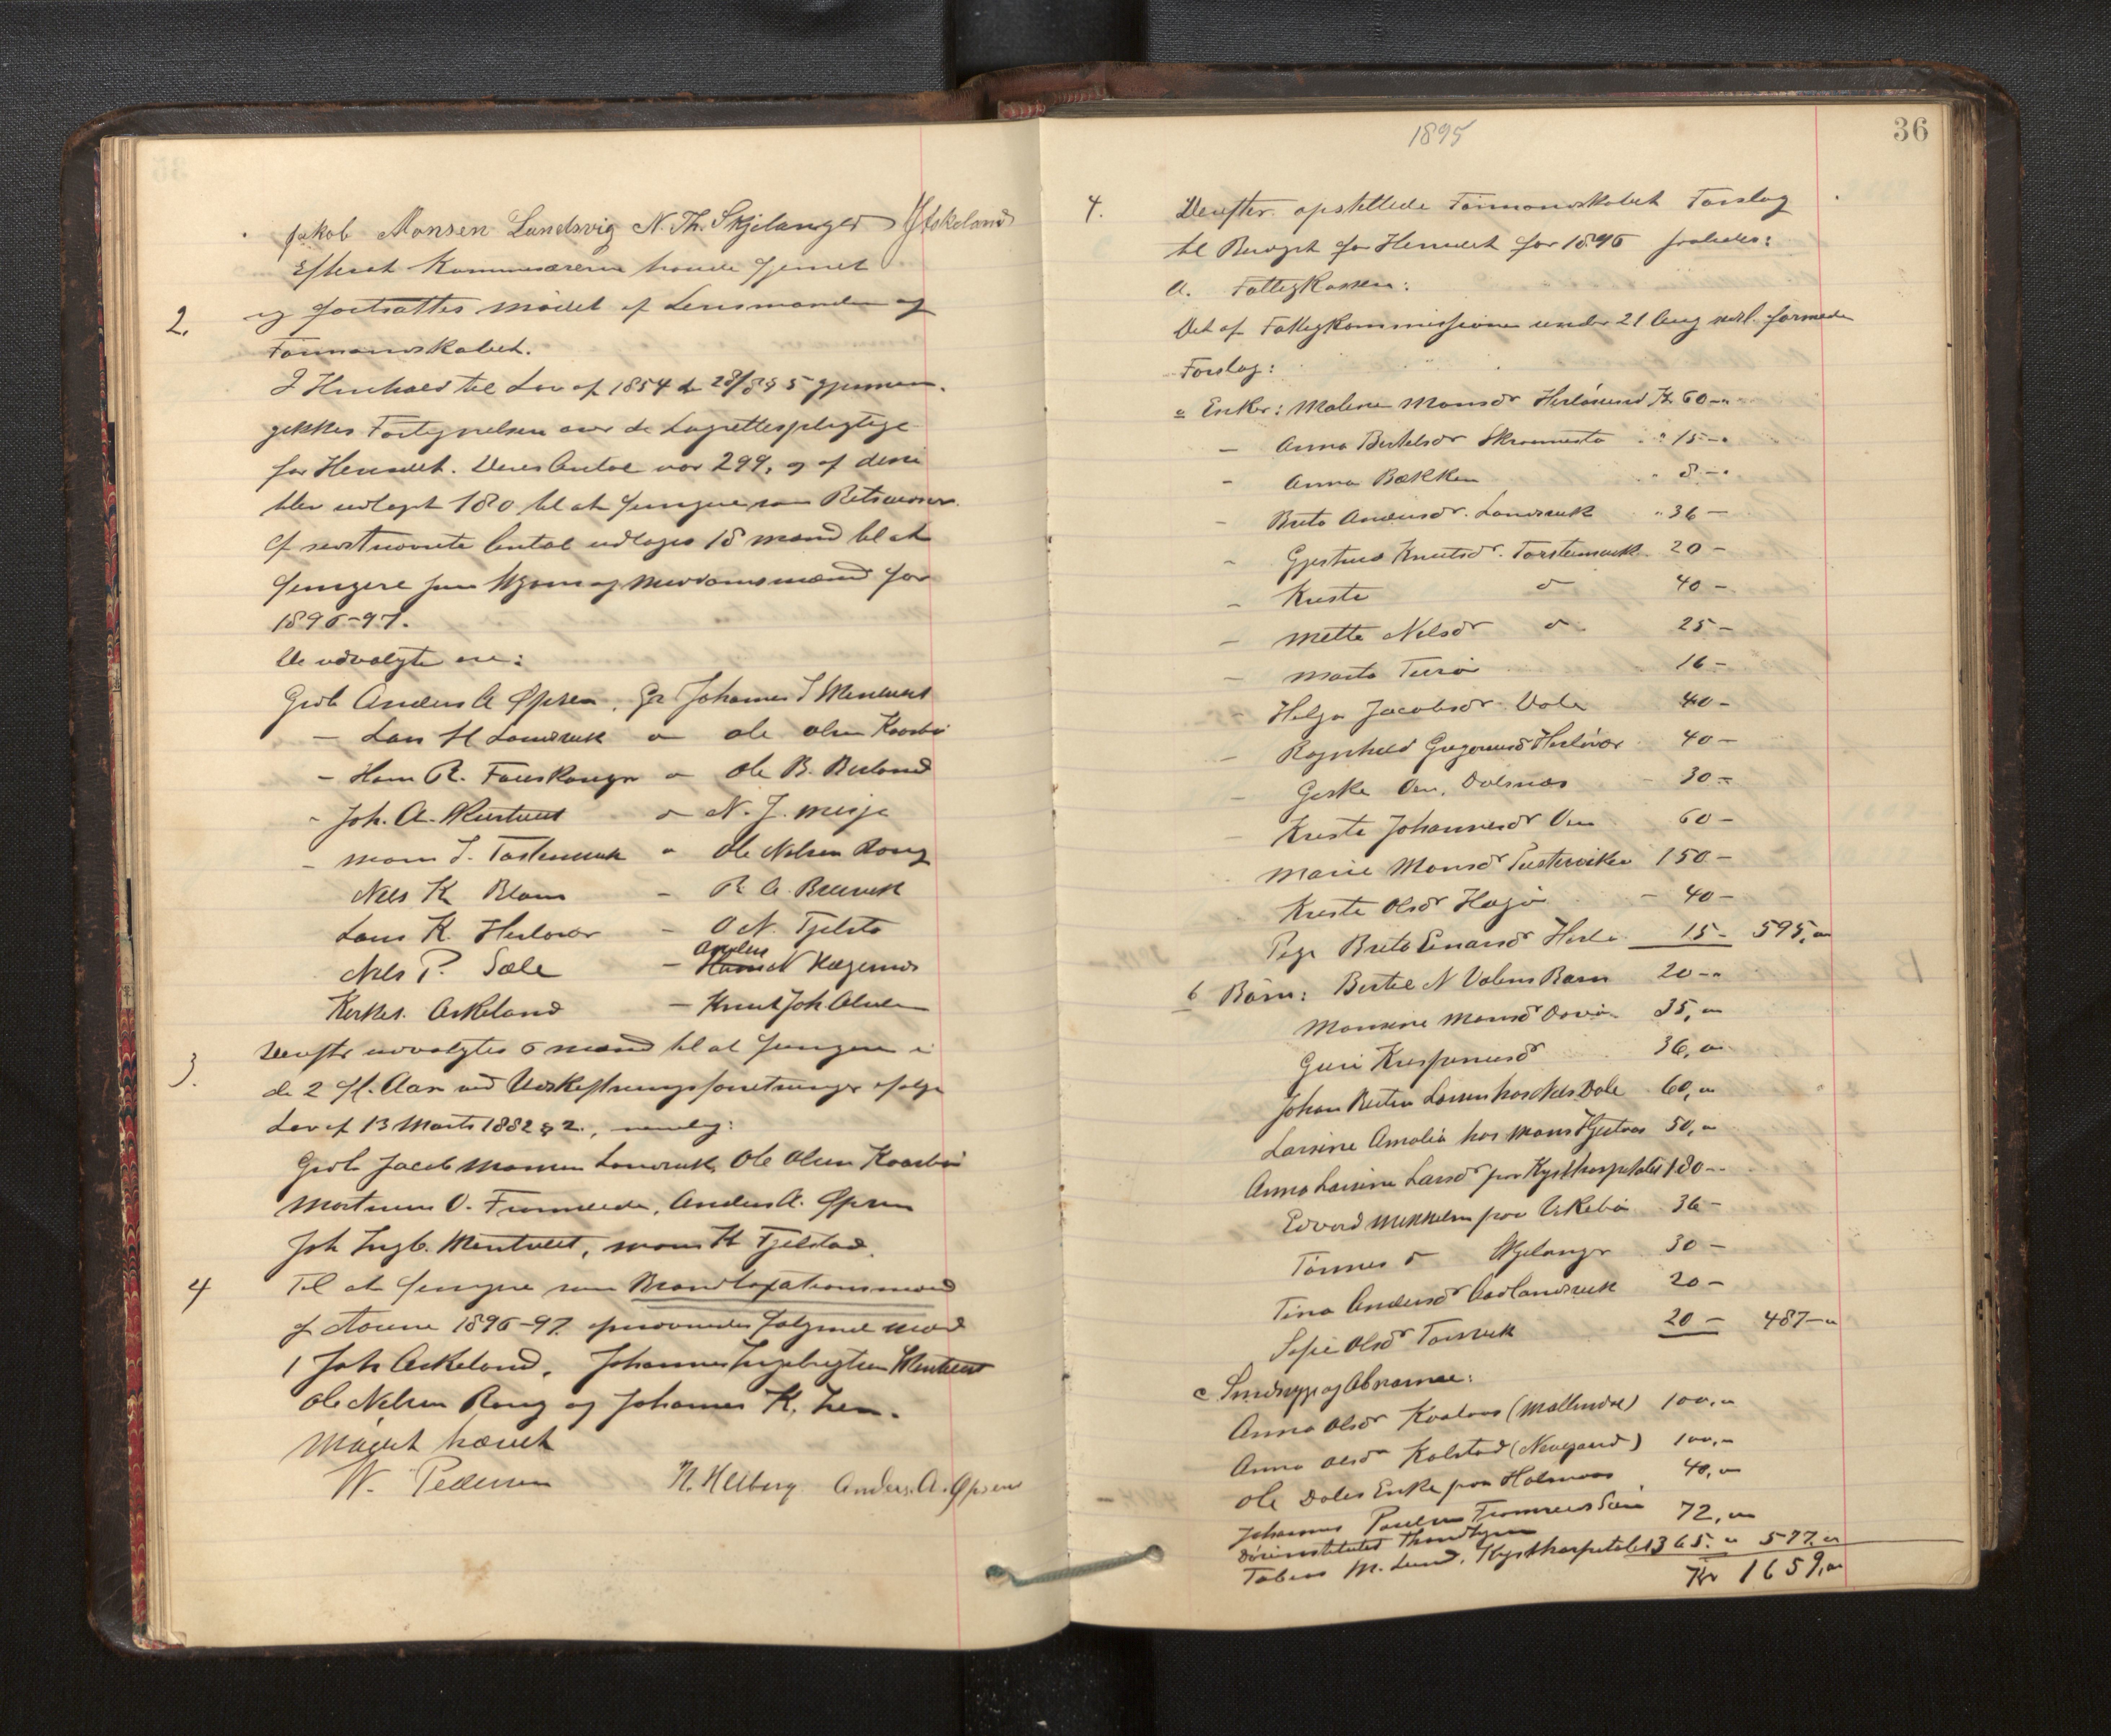 Jakob Monsen Landsvig N. Th. Skjelanger J Askeland
Efterat Kommissæren havde fjernet
2. sig fortsattes mødet af Lensmanden og
Formandskabet.
I Henhold til Lov af 1854 d 28/8 § 5 gjennem-
gikkes Fortegnelsen over de Lagrettespligtige
for Herredet. Deres Antal var 299, og af disse
blev udtaget 180 til at fungere som Retsvidner.
Af sidstnævnte Antal udtages 18 mænd til at
fungere som Skjøns og Meddomsmænd for
1896-97.
De udvalgte ere:
Grdb Anders A Øpsen, Gr Johannes I Mentveit
- Lars H Landsvik o Ole Olsen Kaarbø
- Hans R. Fauskanger o Ole B. Berland
- Joh. A. o N. J. Misje
- Mons J. Torstensvik o Ole Nelsen Rong
Nils K Blom - R. A. Breivik
Lars K. Herløvær - O N. Tjelsto
Nils P. Sæle - Anders N Hægernes
Kirkes. Askeland - Knut Joh Alvheim
3. Derefter udvalgtes 6 mænd til at fungere i
de 2 flg. Aar ved Udskiftningsforretninger ifølge
Lov af 13 Marts 1882 § 2., nemlig:
Grdb Jacob Monsen Landsvik, Ole Olsen Kaarbø
Martinus O. Fromreide, Anders A. Øpsen
Joh Ingb. Mentveit, Mons K Tjelstad.
4 Til at fungere som Brandtaxationsmænd
for Aarene 1896-97 opnævnedes følgende mænd
1 Joh Askeland, Johannes Ingebrigtsen Mentveit
Ole Nelsen Rong og Johannes K.
Mødet hævet
W. Pedersen N. Helberg Anders. A. Øpsen
1895
36
4. Derefter opstillede Formandskabet Forslag
til Budget for Herredet for 1896 saaledes:
A. Fattigkassen:
Det af Fattigkommissionen under 21 Aug sidstl. formede
Forslag:
a Enker: Malene Monsdr Herløsund Kr 60-"
- Anna Bertelsdr Skrammestø " 15-"
- Anna Bækken " 8-"
- Brita Andersdr. Landsvik " 36-
- Gjertrud Knutsdr. Torstensvik 20-
- Kristi o 40-
- Mette Nilsdr o 25-
- Marta Turø 16-
Helga Jacobsdr Dale 40-
- Ragnhild Gregoriusd Herløvær 40-
- Geske Dalsnæs 30-
- Kristi Johannesdr Oen 60-
Marie Monsdr Sæterviken 150-
Kristi Olsdr Hagø - 40-
Pige Brita Einarsdr Herlø 15- 595,"
b Børn: Bertel N Valens Barn 20-"
Monsine Monsd 35,"
Guri Krispinusdr 36,"
Johan Larsen hos Nils Dale 60,"
Larsine Amalia hos Mons Hjertaas 50,"
Anna Larsine Larsdr paa Kysthospitalet 180-"
Edvard Mikkelsen paa Askebø 36-
Tønnes o Skjelanger 30-
Tina Andersdr Aadlandsvik 20-
Sofie Olsdr Toskevik 20- 487-"
c Sindssyge og Abnorme:
Anna Olsdr Kvalvaas (Møllendal) 100,"
Anna Olsdr Kolstad (Neuegaard) 100,"
Ole Dales Enke paa Holmaas 40,"
Johannes Paulsen Fromreide 72,"
Døveinstitutet Trondhjem
Tobias M. Lund. Kysthospitalet 365." 577."
Kr 1659,"